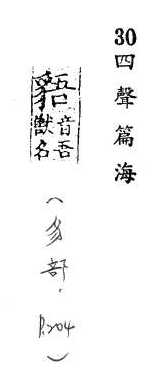 30四聲篇海
音吾
獸名
（豸部．P.204）